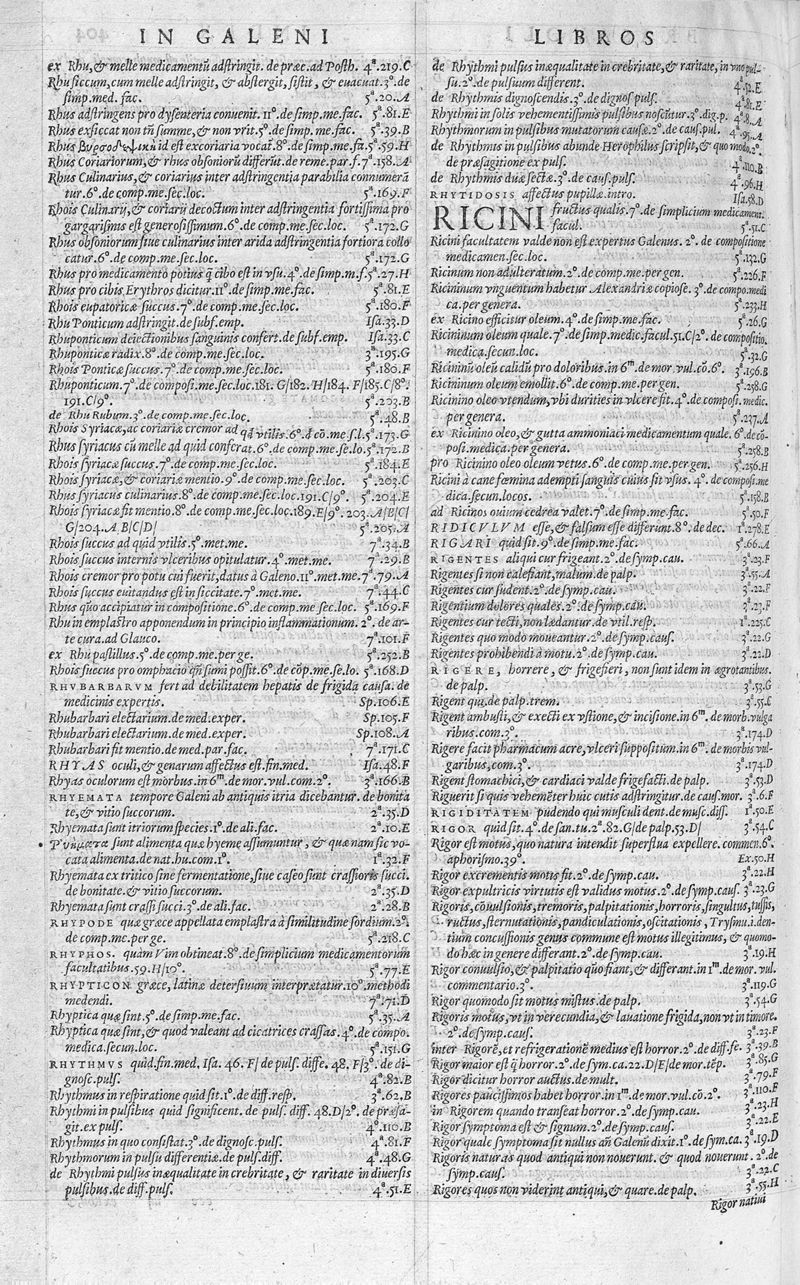 IN GALENI
ex Rhu, & melle medicamentũ adſtringit. de præc. ad Poſth. 4ª.219.C
Rhu ſiccum, cum melle adſtringit, & abſtergit, ſiſtit, & euacuat. 3°. de
ſimp. med. fac. 5ª.20.A
Rhus adſtringens pro dyſenteria conuenit. 11°. de ſimp. me. fac. 5ª.81.E
Rhus exſiccat non tñ ſumme, & non vrit. 5°. de ſimp. me. fac. 5ª.39.B
Rhus βυρσοδεψικὴ id est excoriaria vocat. 8°. de ſimp. me. fa. 5ª.59.H
Rhus Coriariorum, & rhus obſoniorũ differũt. de reme. par. f. 7ª.158.A
Rhus Culinarius, & coriarius inter adſtringentia parabilia connumerã
tur. 6°. de comp. me. ſec. loc. 5ª.169.F
Rhois Culinarij, & coriarij decoctum inter adſtringentia fortiſſima pro
gargariſmus eſt generoſiſſimum. 6°. de comp. me. ſec. loc. 5ª.172.G
Rhus obſoniorum ſiue culinarius inter arida adſtringentia fortiora collo
catur. 6°. de comp. me. ſec. loc. 5ª.172.G
Rhus pro medicamento potius q̃ cibo eſt in vſu. 4°. de ſimp. m. f. 5ª.27.H
Rhus pro cibis Erythros dicitur. 11°. de ſimp. me. fac. 5ª.81.E
Rhois eupatoricæ ſuccus. 7°. de comp. me. ſec. loc. 5ª.180.F
Rhu Ponticum adſtringit. de ſubf. emp. Iſa.33.D
Rhuponticum deiectionibus ſanguinis confert. de ſubf. emp. Iſa.33.C
Rhuponticæ radix. 8°. de comp. me. ſec. loc. 3ª.195.G
Rhois Ponticæ ſuccus. 7°. de comp. me. ſec. loc. 5ª.180.F
Rhuponticum. 7°. de compoſi. me. ſec. loc. 181. G/182. H/184. F/185. C/8°.
191. C/9°. 5ª.203.B
de Rhu Rubum. 3°. de comp. me. ſec. loc. 5ª.48.B
Rhois Syriacæ, ac coriariæ cremor ad qd vtilis. 6°. d cõ. me. ſ. l. 5ª.173.G
Rhus ſyriacus cũ melle ad quid conferat. 6°. de comp. me. ſe. lo. 5ª.172.B
Rhois ſyriacæ ſuccus. 7°. de comp. me. ſec. loc. 5ª.184.E
Rhois ſyriacæ, & coriariæ mentio. 9°. de comp. me. ſec. loc. 5ª.203.C
Rhus ſyriacus culinarius. 8°. de comp. me. ſec. loc. 191. C/9°. 5ª.204.E
Rhois ſyriacæ fit mentio. 8°. de comp. me. ſec. loc. 189. E/9°. 203. A/B/C/
G/204. A B/C/D/ 5ª.205.A
Rhois ſuccus ad quid vtilis. 5°. met. me. 7ª.34.B
Rhois ſuccus internis vlceribus opitulatur. 4°. met. me. 7ª.29.B
Rhois cremor pro potu cui fuerit, datus à Galeno. 11°. met. me. 7ª.79.A
Rhois ſuccus euitandus eſt in ſiccitate. 7°. met. me. 7ª.44.C
Rhus quo accipiatur in compoſitione. 6°. de comp. me. ſec. loc. 5ª.169.F
Rhu in emplastro apponendum in principio inflammationum. 2°. de ar-
te cura. ad Glauco. 7ª.101.F
ex Rhu paſtillus. 5°. de comp. me. per ge. 5ª.252.B
Rhois ſuccus pro omphacio qñ ſumi poſſit. 6°. de cõp. me. ſe. lo. 5ª.168.D
RHVBARBARVM fert ad debilitatem hepatis de frigida cauſa. de
medicinis expertis. Sp.106.E
Rhubarbari electarium. de med. exper. Sp.105.F
Rhubarbari electarium. de med. exper. Sp.108.A
Rhubarbari fit mentio. de med. par. fac. 7ª.171.C
RHYAS oculi, & genarum affectus eſt. fin. med. Iſa.48.F
Rhyas oculorum eſt morbus. in 6ᵐ. de mor. vul. com. 2°. 3ª.166.B
RHYEMATA tempore Galeni ab antiquis itria dicebantur. de bonita
te, & vitio ſuccorum. 2ª.35.D
Rhyemata ſunt itriorum ſpecies. 1°. de ali. fac. 2ª.10.E
• Ῥυήματα ſunt alimenta quæ hyeme aſſumuntur, & quæ nam ſic vo-
cata alimenta. de nat. hu. com. 1°. 1ª.32.F
Rhyemata ex tritico ſine fermentatione, ſiue caſeo ſunt craſſioris ſucci.
de bonitate. & vitio ſuccorum. 2ª.35.D
Rhyemata ſunt craſſi ſucci. 3°. de ali. fac. 2ª.28.B
RHYPODE quæ græce appellata emplaſtra à ſimilitudine ſordium. 2°.
de comp. me. per ge. 5ª.218.C
RHYPHOS. quàm Vim obtineat. 8°. de ſimplicium medicamentorum
facultatibus. 59. H/10°. 5ª.77.E
RHYPTICON græce, latinæ deterſiuum interprætatur. 10°. methodi
medendi. 7ª.71.D
Rhyptica quæ ſint. 5°. de ſimp. me. fac. 5ª.35.A
Rhyptica quæ ſint, & quod valeant ad cicatrices craſſas. 4°. de compo.
medica. ſecun. loc. 5ª.151.G
RHYTHMVS quid. fin. med. Iſa. 46. F/ de pulſ. diffe. 48. F/3°. de di-
gnoſc. pulſ. 4ª.82.B
Rhythmus in reſpiratione quid ſit. 1°. de diff. reſp. 3ª.62,B
Rhythmi in pulſibus quid ſignificent. de pulſ. diff. 48. D/2°. de præſa-
git. ex pulſ. 4ª.110.B
Rhythmus in quo conſiſtat. 3°. de dignoſc. pulſ. 4ª.81.F
Rhythmorum in pulſu differentiæ. de pulſ. diff. 4ª.48.G
de Rhythmi pulſus inæqualitate in crebritate, & raritate in diuerſis
pulſibus. de diff. pulſ. 4ª.51.E
LIBROS
de Rhythmi pulſus inæqualitate in crebritate, & raritate, in vno pul-
ſu. 2°. de pulſuum different. 4ª.52.E
de Rhythmis dignoſcendis. 3°. de dignoſ. pulſ. 4ª.81.E
Rhythmi in ſolis vehementiſſimis pulſibus noſcũtur. 3°. dig. p. 4ª.8.A
Rhythmorum in pulſibus mutatorum cauſæ. 2°. de cauſ. pul. 4ª.95.A
de Rhythmis in pulſibus abunde Herophilus ſcripſit, & quo modo. 2°.
de præſagitione ex pulſ. 4ª.110.B
de Rhythmis duæ ſectæ. 3°. de cauſ. pulſ. 4ª.96.H
RHYTIDOSIS affectus pupillæ. intro. Iſa.58.D
RICINI fructus qualis. 7°. de ſimplicium medicament.
facul. 5ª.51.C
Ricini facultatem valde non est expertus Galenus. 2°. de compoſitione
medicamen. ſec. loc. 5ª.132.G
Ricinum non adulteratum. 2°. de comp. me. per gen. 5ª.226.F
Ricininum vnguentum habetur Alexandriæ copioſe. 3°. de compo. medi
ca. per genera. 5ª.233.H
ex Ricino efficitur oleum. 4°. de ſimp. me. fac. 5ª.26.G
Ricininum oleum quale. 7°. de ſimp. medic. facul. 51. C/2°. de compoſitio.
medica. ſecun. loc. 5ª.32.G
Ricininũ oleũ calidũ pro doloribus. in 6ᵐ. de mor. vul. cõ. 6°. 3ª.196.B
Ricininum oleum emollit. 6°. de comp. me. per gen. 5ª.258.G
Ricinino oleo vtendum, vbi durities in vlcere ſit. 4°. de compoſi. medic.
per genera. 5ª.237.A
ex Ricinino oleo, & gutta ammoniaci medicamentum quale. 6°. de cõ-
poſi. medica. per genera. 5ª.258.B
pro Ricinino oleo oleum vetus. 6°. de comp. me. per gen. 5ª.256.H
Ricini à cane fœmina adempti ſanguis cuius ſit vſus. 4°. de compoſi. me
dica. ſecun. locos. 5ª.158.B
ad Ricinos ouium cedrea valet. 7°. de ſimp. me. fac. 5ª.50.F
RIDICVLVM eſſe, & falſum eſſe differunt. 8°. de dec. 1ª.278.E
RIGARI quid ſit. 9°. de ſimp. me. fac. 5ª.66.A
RIGENTES aliqui cur frigeant. 2°. de ſymp. cau. 3ª.23.F
Rigentes ſi non calefiant, malum. de palp. 3ª.55.A
Rigentes cur ſudent. 2°. de ſymp. cau. 3ª.22.F
Rigentium dolores quales. 2°. de ſymp. cau. 3ª.23.F
Rigentes cur tecti, non lædantur. de vtil. reſp. 1ª.225.C
Rigentes quo modo moueantur. 2°. de ſymp. cauſ. 3ª.22.G
Rigentes prohibendi à motu. 2°. de ſymp. cau. 3ª.21.D
RIGERE, horrere, & frigefieri, non ſunt idem in ægrotantibus.
de palp. 3ª.53.G
Rigent qui. de palp. trem. 3ª.55.C
Rigent ambuſti, & execti ex vſtione, & inciſione. in 6ᵐ. de morb. vulga
ribus. com. 3°. 3ª.174.D
Rigere facit pharmacum acre, vlceri ſuppoſitum. in 6ᵐ. de morbis vul-
garibus, com. 3°. 3ª.174.D
Rigent ſtomachici, & cardiaci valde frigefacti. de palp. 3ª.53.D
Riguerit ſi quis vehemẽter huic cutis adſtringitur. de cauſ. mor. 3ª.6.F
RIGIDITATEM pudendo qui muſculi dent. de muſc. diſſ. 1ª.50.E
RIGOR quid ſit. 4°. de ſan. tu. 2ª.82.G/de palp. 53. D/ 3ª.54.C
Rigor eſt motus, quo natura intendit ſuperflua expellere. commen. 6°.
aphoriſmo. 39°. Ex.50.H
Rigor excrementis motus fit. 2°. de ſymp. cau. 3ª.22.H
Rigor expultricis virtutis eſt validus motus. 2°. de ſymp. cauſ. 3ª.23.G
Rigoris, cõuulſionis, tremoris, palpitationis, horroris, ſingultus, tuſſis,
ructus, ſternutationis, pandiculationis, oſcitationis, Tryſmu. i. den-
tium concuſſionis genus commune eſt motus illegitimus, & quomo-
do hæc in genere differant. 2°. de ſymp. cau. 3ª.19.H
Rigor conuulſio, & palpitatio quo fiant, & differant. in 1ᵐ. de mor. vul.
commentario. 3°. 3ª.119.G
Rigor quomodo ſit motus miſtus. de palp. 3ª.54.G
Rigoris motus, vt in verecundia, & lauatione frigida, non vt in timore.
2°. de ſymp. cauſ. 3ª.23.F
inter Rigorẽ, et refrigerationẽ medius eſt horror. 2°. de diff. fe. 3ª.39.B
Rigor maior eſt q̃ horror. 2°. de ſym. ca. 22. D/E/de mor. tẽp. 3ª.85.G
Rigor dicitur horror auctus. de mult. 3ª.79.F
Rigores pauciſſimos habet horror. in 1ᵐ. de mor. vul. cõ. 2°. 3ª.110.F
in Rigorem quando tranſeat horror. 2°. de ſymp. cau. 3ª.23.H
Rigor ſymptoma eſt & ſignum. 2°. de ſymp. cauſ. 3ª.22.E
Rigor quale ſymptoma ſit nullus añ Galenũ dixit. 1°. de ſym. ca. 3ª.19.D
Rigoris naturas quod antiqui non nouerunt. & quod nouerunt. 2°. de
ſymp. cauſ. 3ª.22.C
Rigores quos non viderint antiqui, & quare. de palp. 3ª.55.H
Rigor natiui